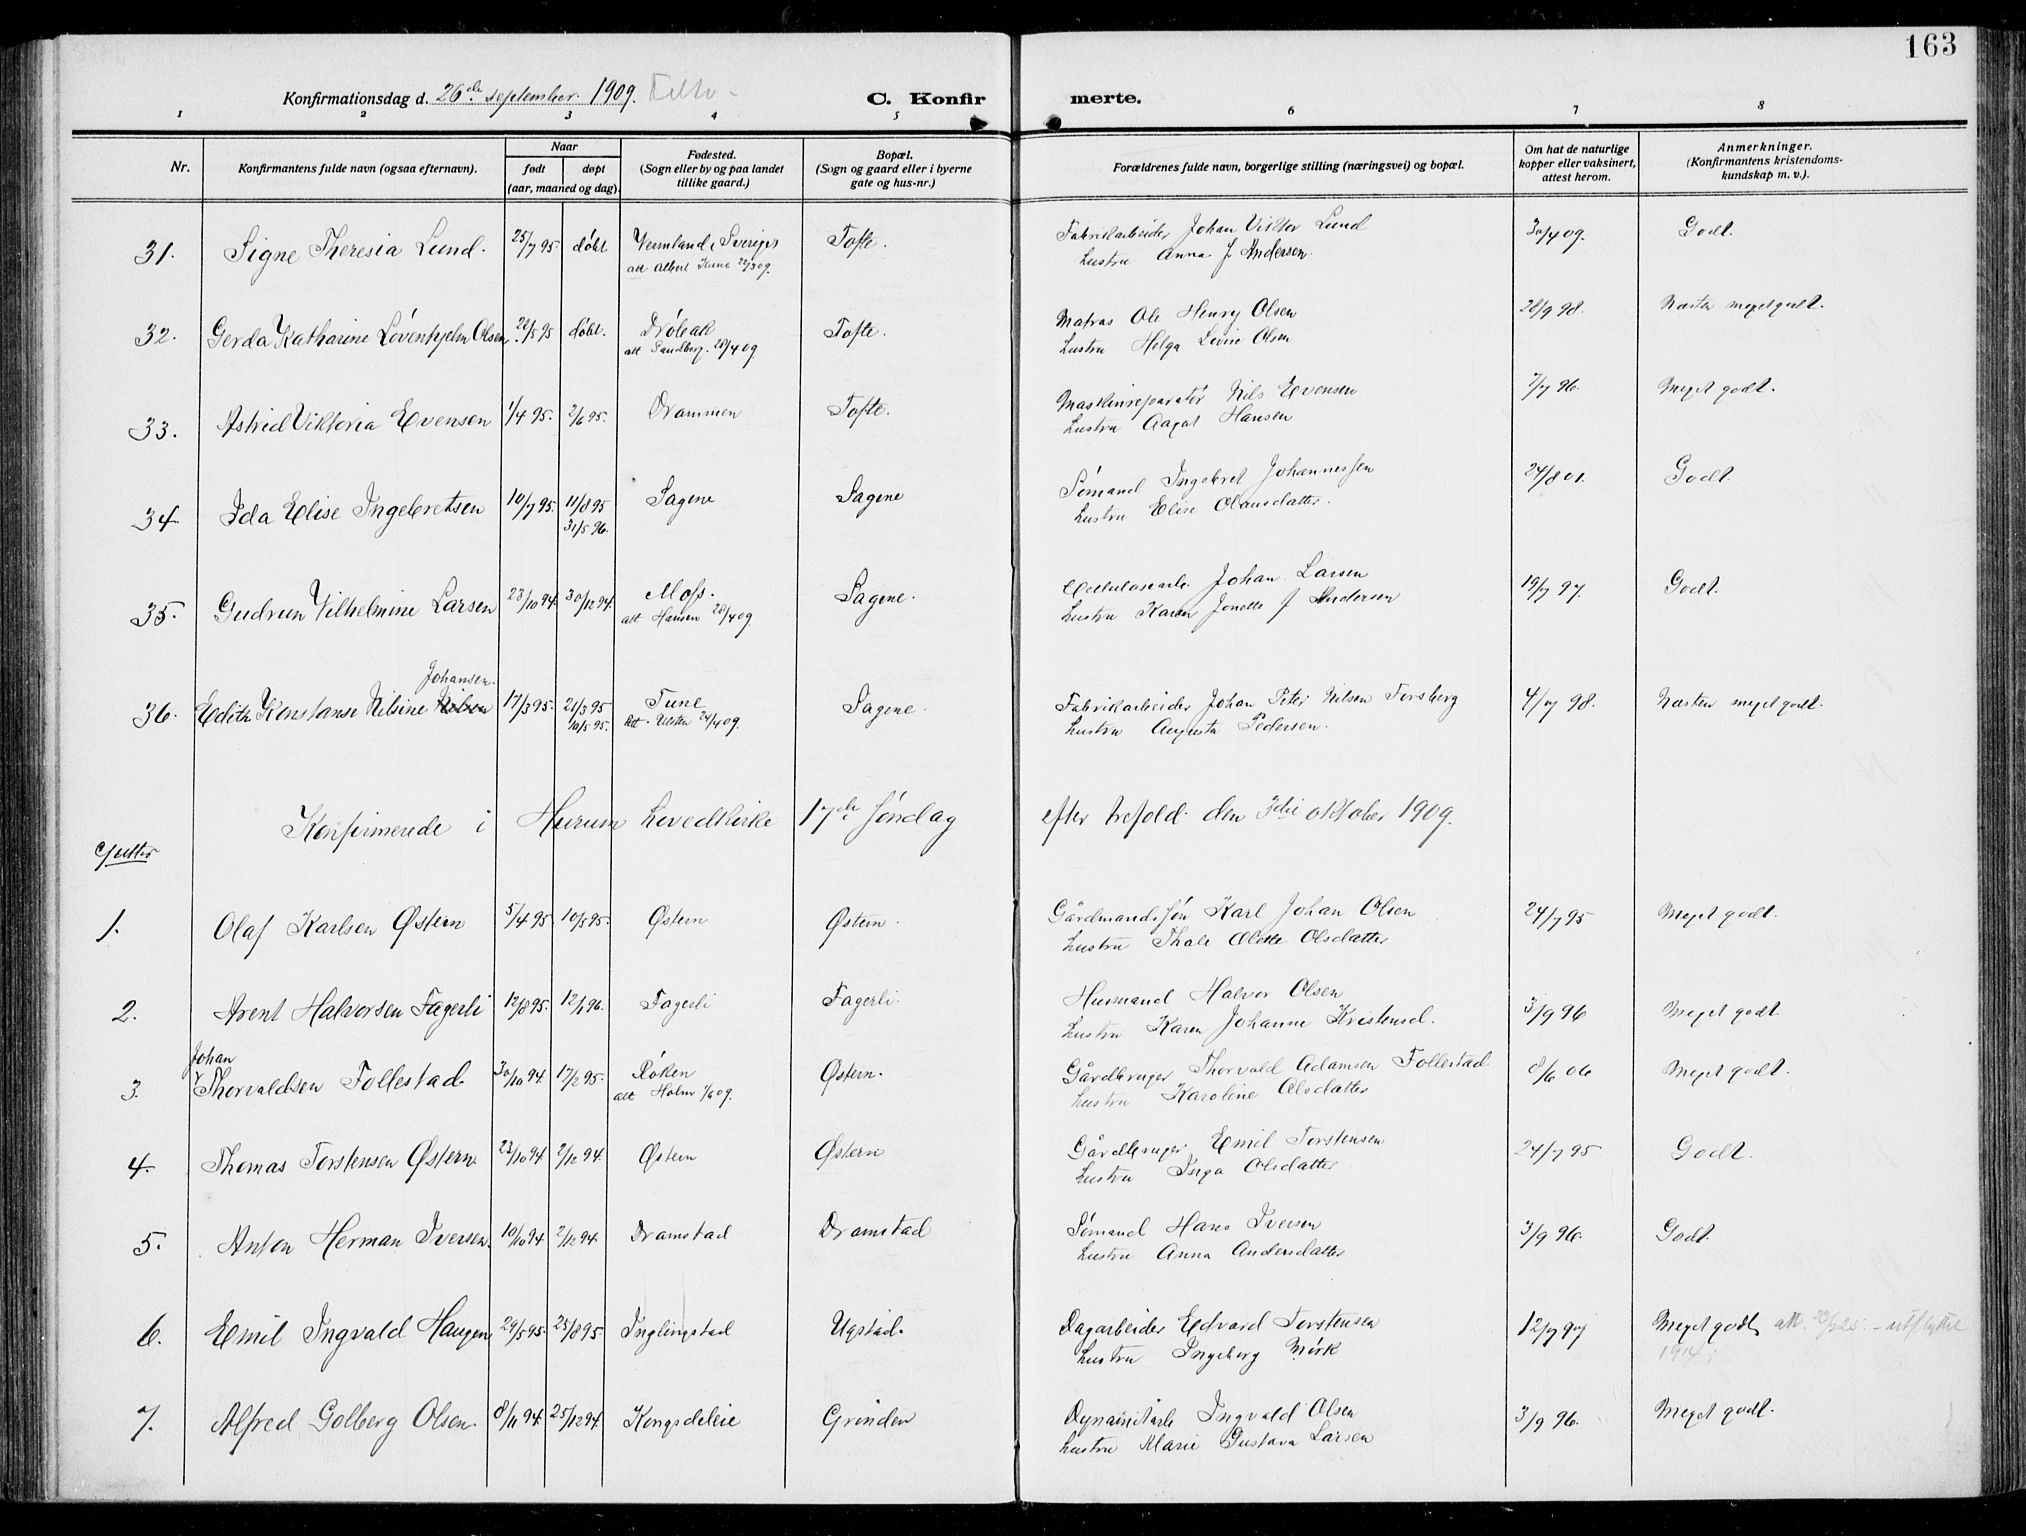 163
Konfirmationsdag d. 26de september 1909.
C. Konfirmerte.
1 2 3 4 5 6 7 8
Nr.
Konfirmantens fulde navn (ogsaa efternavn).
Naar
født døpt
(aar, maaned og dag).
Fødested.
(Sogn eller by og paa landet
tillike gaard.)
Bopæl.
(Sogn og gaard eller i byerne
gate og hus-nr.)
Forældrenes fulde navn, borgerlige stilling (næringsvei) og bopæl.
Om hat de naturlige
kopper eller vaksinert,
attest herom.
Anmerkninger.
(Konfirmantens kristendoms-
kundskap m. v.).
31. Signe Theresia Lund. 25/7 95. døbt Vermland i Sverige Tofte. Fabrikarbeider Johan Viktor Lund 30/4 09. Godt.
hustru Anna f Andersen.
32. Gerda Katharine Lövenhjelm Olsen. 22/5 95 døbt. Drøbak Tofte. Matros Ole Henry Olsen 28/9 98. Næsten meget godt.
att Sandberg. 28/4 09 hustru Helga Olsen
33. Astrid Viktoria Evensen 1/4 95. 2/6 95. Drammen Tofte. Maskinreparatør Nils Evensen 7/7 96. Meget godt.
hustru Aagot Hansen
34 Ida Elise Ingebretsen 10/7 95. 11/8 95 Sagene Sagene Sømand Ingebret Johannessen 24/8 01. Godt.
31/5 96. hustru Elise Olausdatter.
35. Gudrun Vilhelmine Larsen 23/10 94. 30/12 94. Moss. Sagene. Cellulosearb. Johan Larsen 19/7 97. Godt.
att Hansen 28/4 09. hustru Karen Jonette f Andersen
Johansen.
36. Edith Konstanse Nilsine Nilsen 17/3 95. 21/3 95 Tune Sagene. Fabrikarbeider Johan Peter Nilsen Forsberg 4/7 98. Næsten meget godt.
24/4 09. hustru Augusta Pedersen.
Konfirmerede i Hurum hovedkirke 17de søndag efter trefold. den 3die oktober 1909.
Gutter
1. Olaf Karlsen Østern 5/4 95. 10/5 95. Østern Østern. Gårdmandssøn Karl Johan Olsen 24/7 95 Meget godt.
hustru Thale Olette Olsdatter
2. Arent Halvorsen Fagerli 12/8 95. 12/1 96. Fagerli Fagerli. Husmand Halvor Olsen 3/9 96 Meget godt.
hustru Karen Johanne Kristensd.
Johan
3. Thorvaldsen Follestad 30/10 94. 17/2 95. Røken Østern. Gårdbruger Thorvald Adamsen Follestad 8/6 06 Meget godt.
att Holm 1/6 09. hustru Karoline Olsdatter
4. Thomas Torstensen Østern. 23/10 94 2/12 94. Østern Østern Gårdbruger Emil Torstensen 24/7 95 Godt.
hustru Inga Olsdatter
5. Anton Herman Iversen. 10/10 94 2/12 94. Dramstad Dramstad Sømand Hans Iversen 3/9 96. Godt.
hustru Anna Andersdatter
6. Emil Ingvald Haugen 29/5 95. 25/8 95 Inglingstad Ugstad. Dagarbeider Edvard Torstensen 12/7 97 Meget godt, utflyttet
hustru Ingeborg Mørk 1914
7. Alfred Golberg Olsen. 8/11 94. 25/12 94. Kongsdeleie Grinden Dynamitarb Ingvald Olsen 3/9 96. Meget godt.
hustru Marie Gustava Larsen